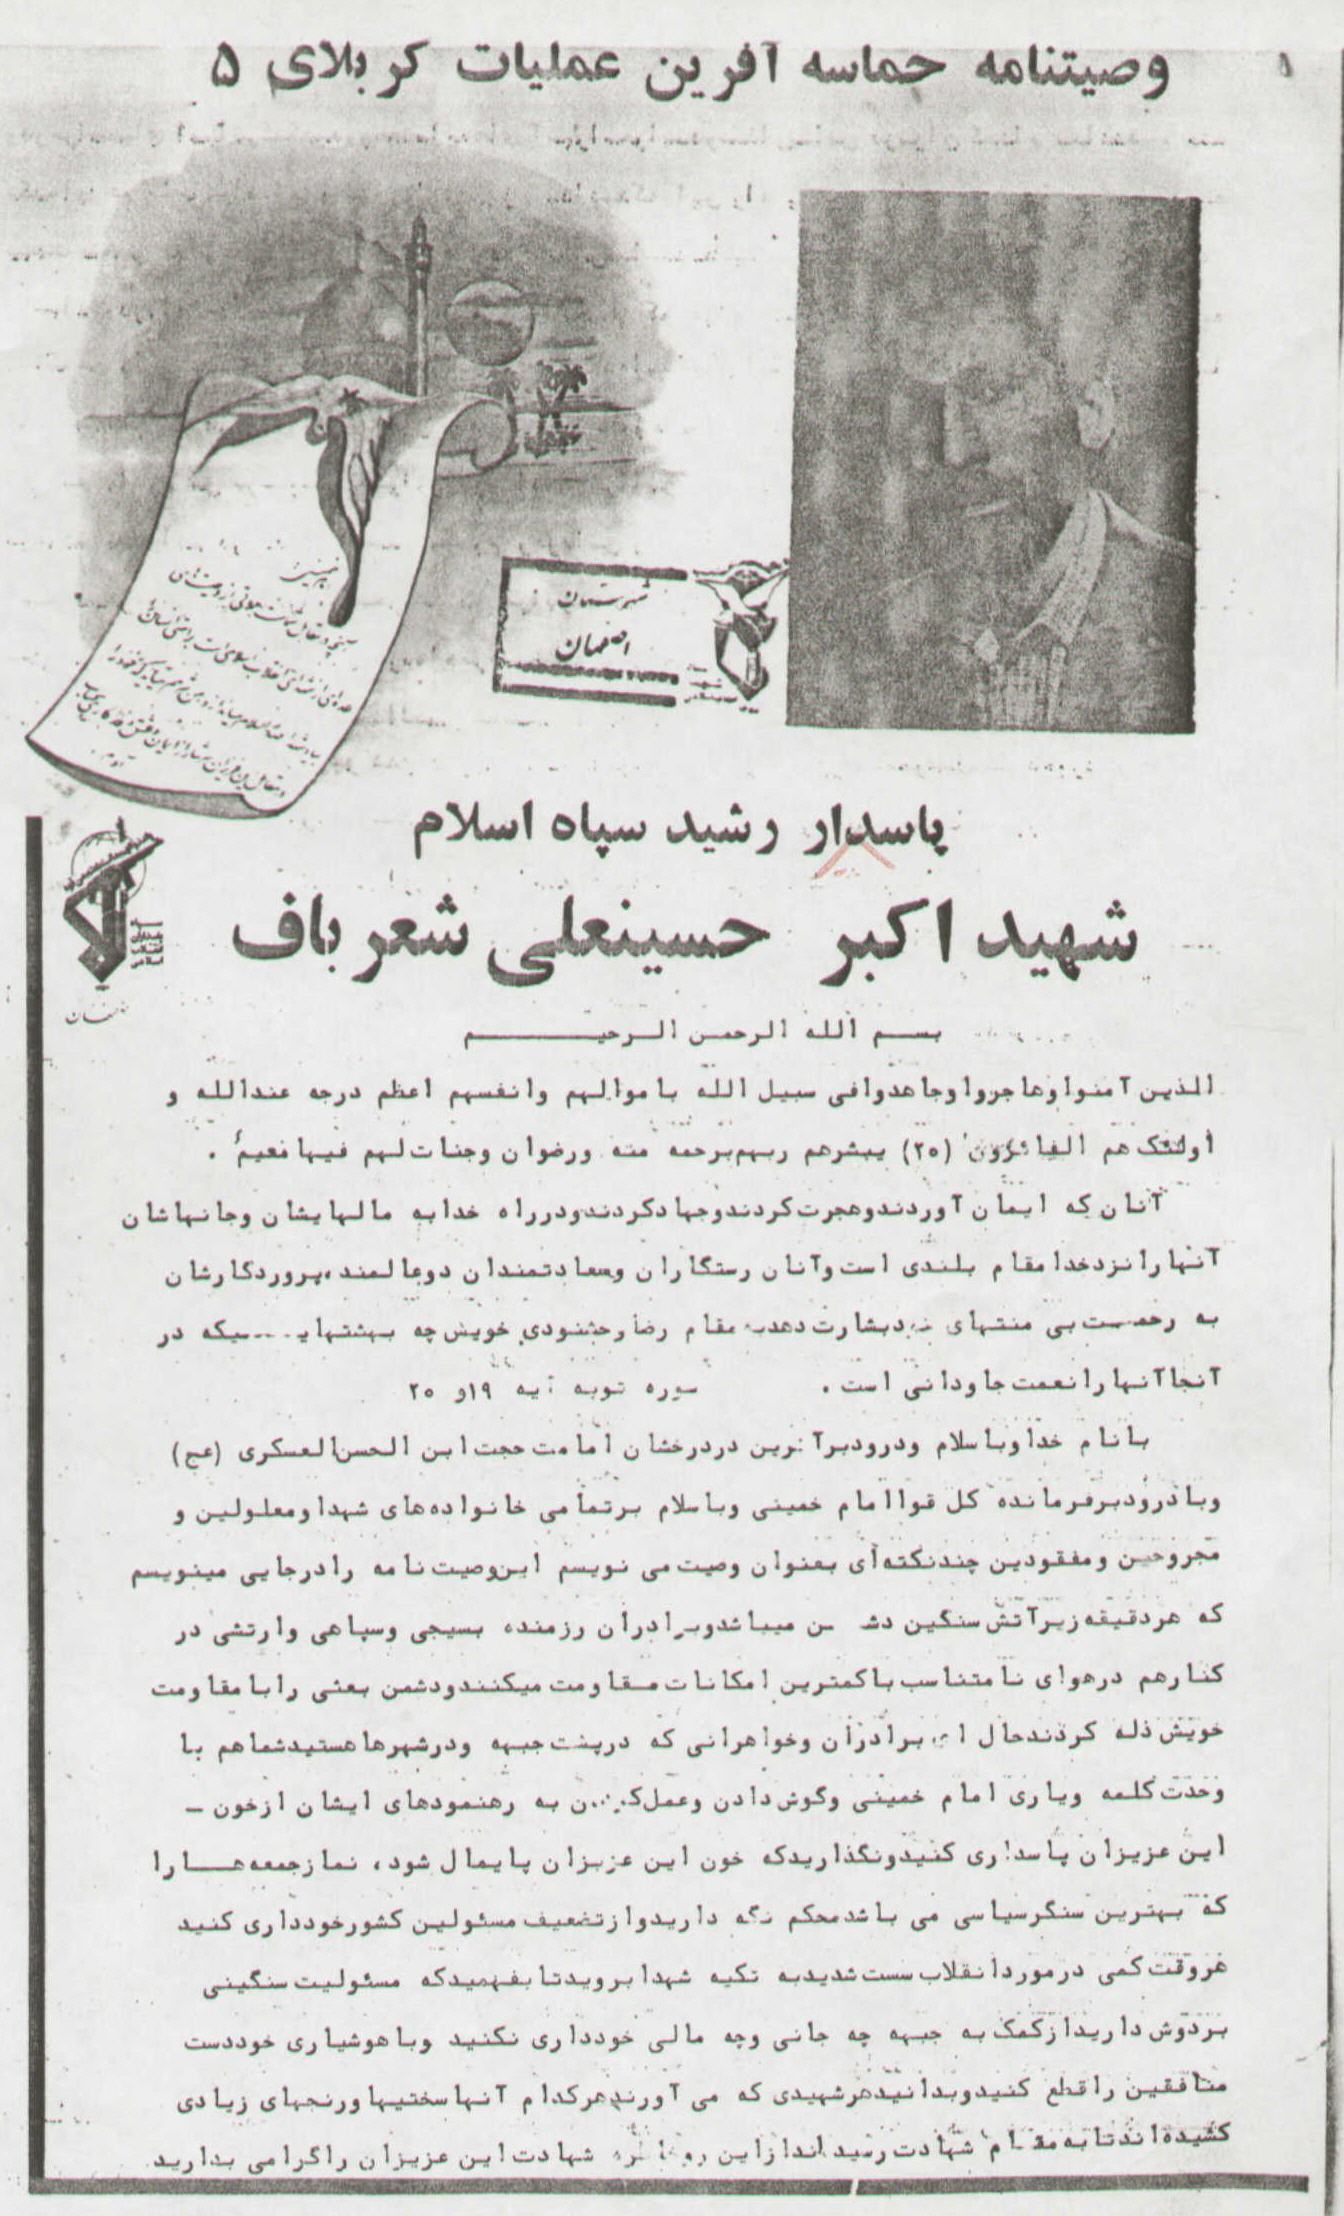 وصیتنامه حماسه آفرین عملیات کربلای ۵
شهرستان
اصفهان
پاسدار رشید سپاه اسلام
شهید اکبر حسینعلی شعرباف
بسم الله الرحمن الرحیم
الذین آمنوا وهاجروا وجاهدوا فی سبیل الله باموالهم وانفسهم اعظم درجه عندالله و
اولئک هم الفائزون (۲۰) یبشرهم ربهم برحمه منه ورضوان وجنات لهم فیها نعیم .
آنان که ایمان آوردندوهجرت کردندوجهادکردندودرراه خدابه مالهایشان وجانهاشان
آنهارانزدخدامقام بلندی است وآنان رستگاران وسعادتمندان دوعالمند،پروردگارشان
به رحمت بی منتهای خودبشارت دهدبه مقام رضاوخشنودی خویش چه بهشتهایـیکه در
آنجاآنهارانعمت جاودانی است . سوره توبه آیه ۱۹و ۲۰
بانام خداوباسلام ودرودبرآخرین دردرخشان امامت حجت ابن الحسن العسکری (عج)
وبادرودبرفرمانده کل قواامام خمینی وباسلام برتمامی خانواده‌های شهداومعلولین و
مجروحین ومفقودین چندنکته‌ای بعنوان وصیت می نویسم این‌وصیت نامه رادرجایی مینویسم
که هردقیقه زیرآتش سنگین دشمن میباشدوبرادران رزمنده بسیجی وسپاهی وارتشی در
کنارهم درهوای نامتناسب باکمترین امکانات مقاومت میکنندودشمن بعثی رابامقاومت
خویش ذله کردندحال ای برادران وخواهرانی که درپشت جبهه ودرشهرهاهستیدشماهم با
وحدت کلمه ویاری امام خمینی وگوش دادن وعمل کردن به رهنمودهای ایشان ازخون -
این عزیزان پاسداری کنیدونگذاریدکه خون این عزیزان پایمال شود، نمازجمعه‌هــارا
که بهترین سنگرسیاسی می باشدمحکم نگه داریدوازتضعیف مسئولین کشورخودداری کنید
هروقت کمی درموردانقلاب سست شدیدبه تکیه شهدابرویدتابفهمیدکه مسئولیت سنگینی
بردوش داریدازکمک به جبهه چه جانی وچه مالی خودداری نکنید وباهوشیاری خوددست
منافقین راقطع کنیدوبدانیدهرشهیدی که می آورندهرکدام آنهاسختیهاورنجهای زیادی
کشیده‌اندتابه مقام شهادت رسیدانداز این رو شهادت این عزیزان راگرامی بدارید